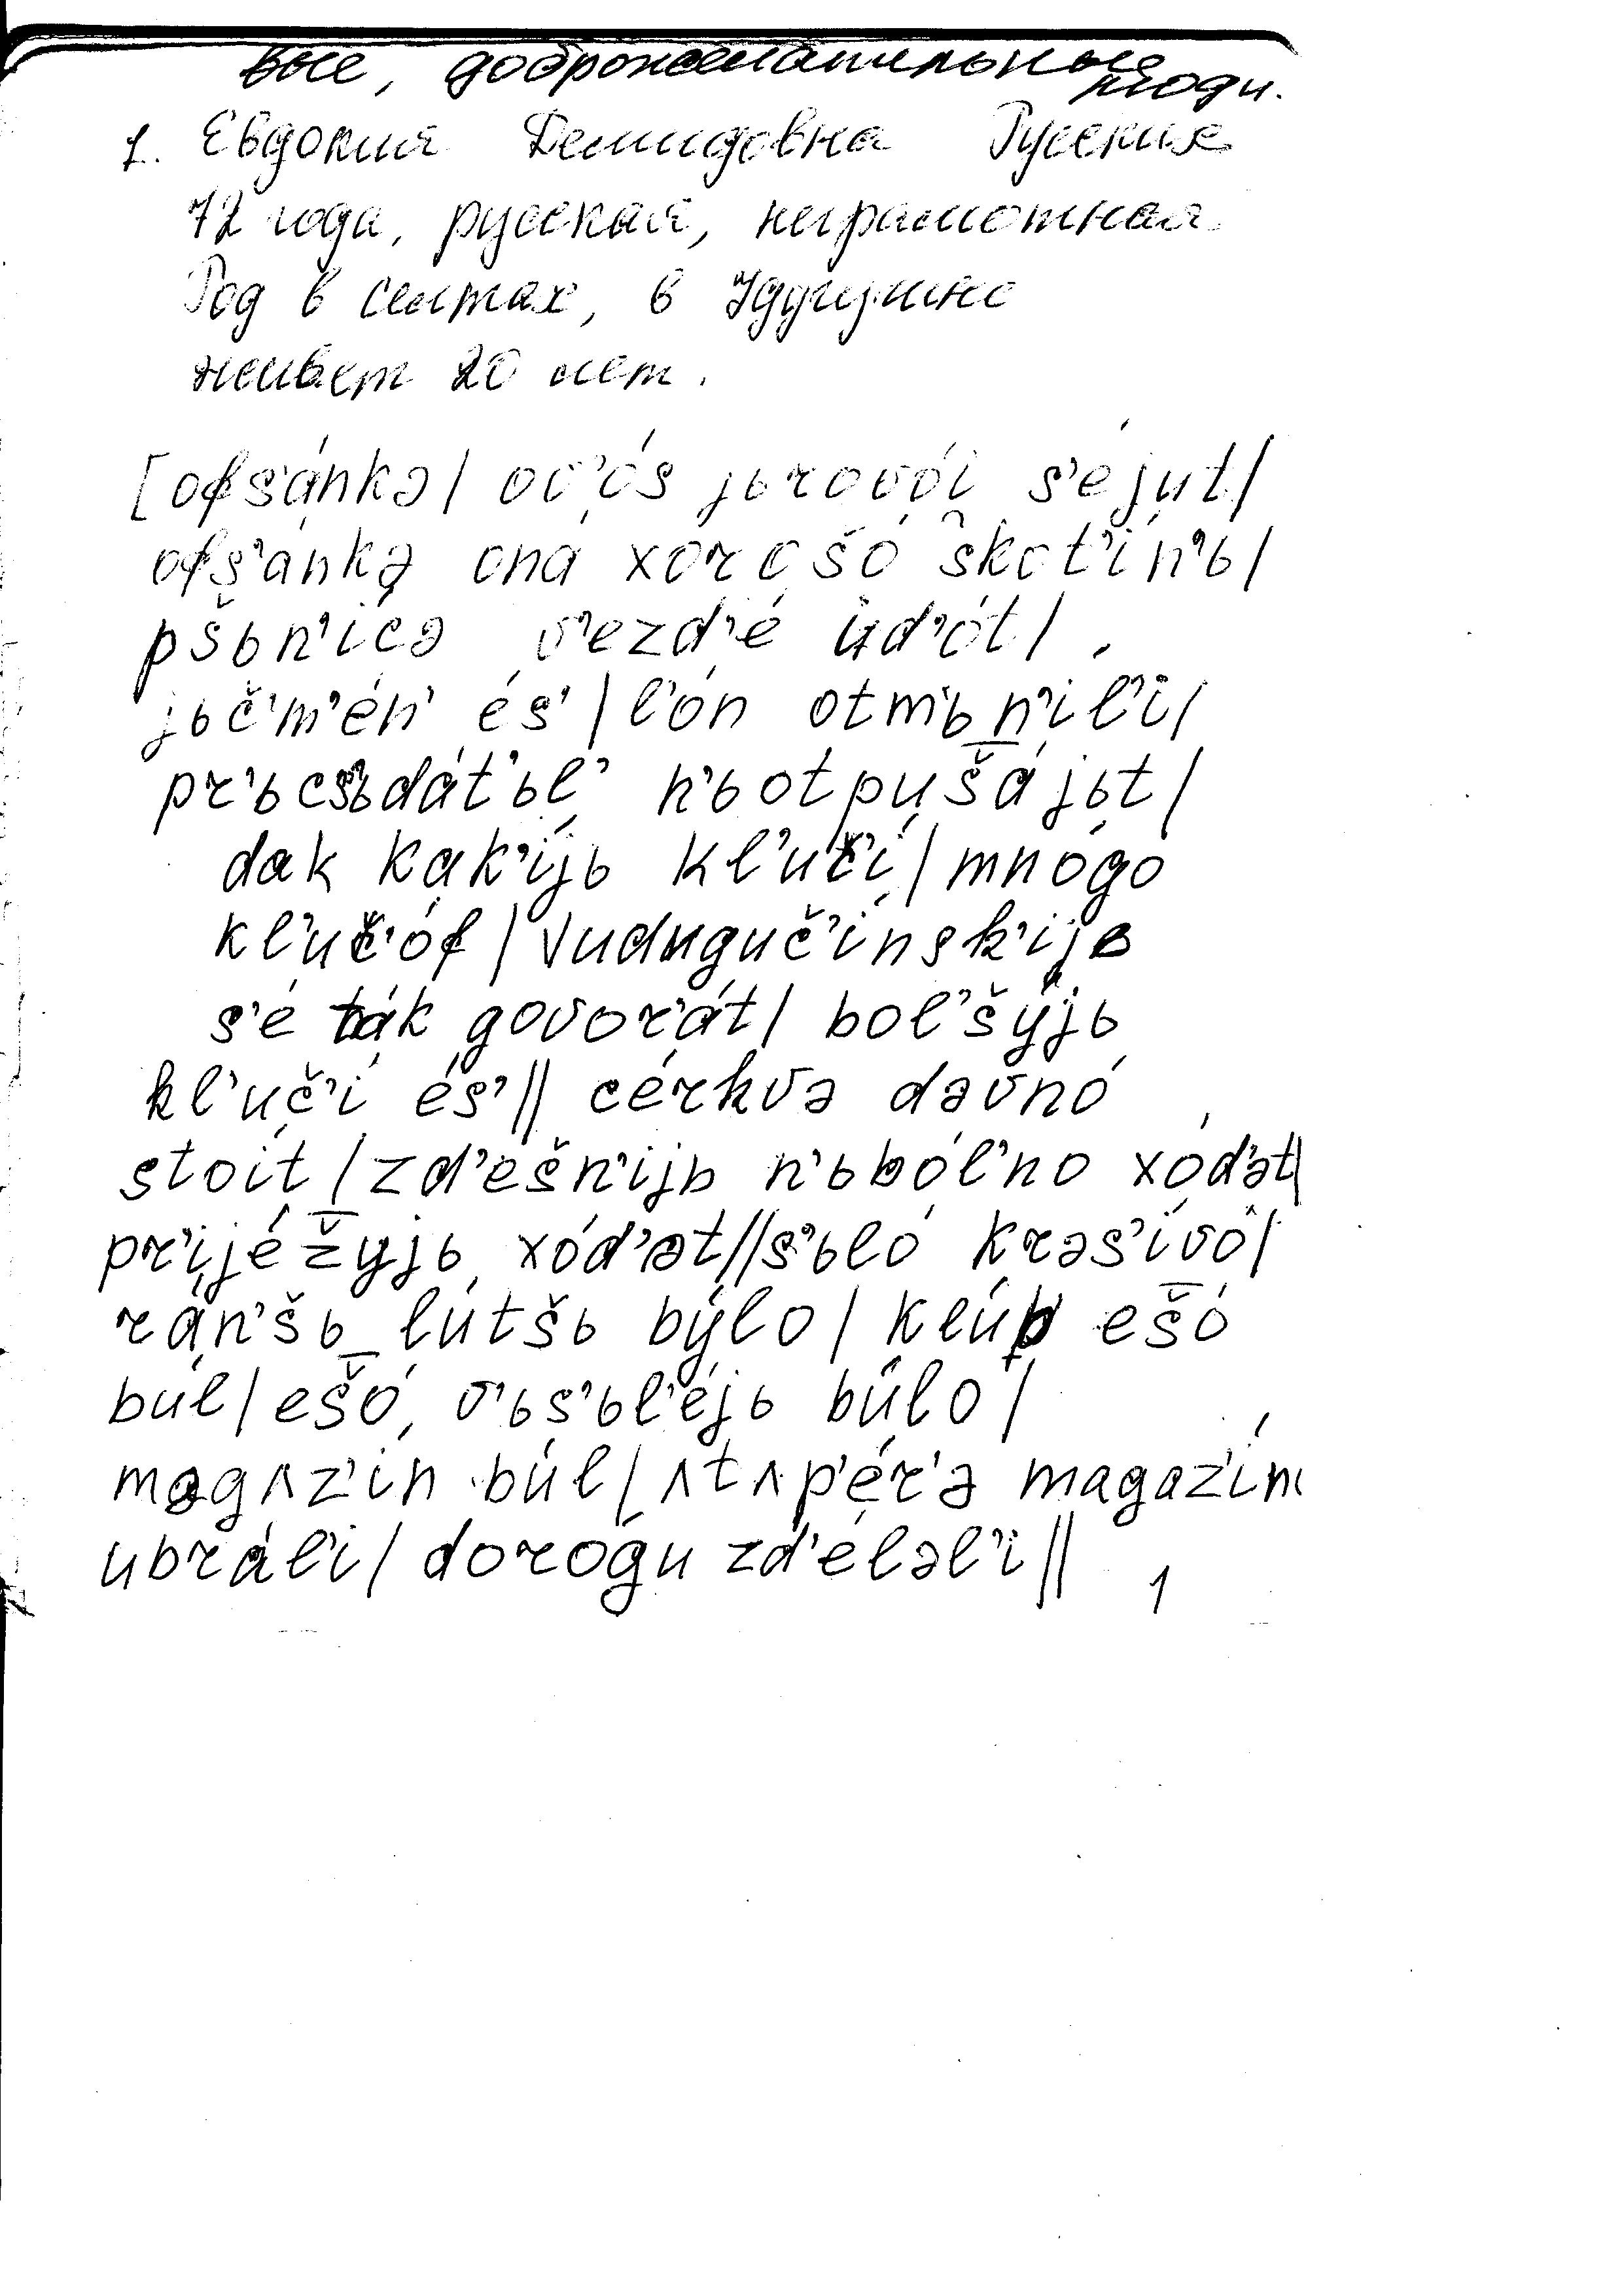 вые, доброжелательные
люди.
1. Евдокия Демидовна Русских
72 года, русская, неграмотная.
Род в Селтах, в Удугучине
живет 20 лет.
[ofs'ánkə| ov'ós jьrovói s'éjut|
ofs'ánkə oná xorošó skot'ín'ь|
pšьn'ícə v'ezd'é ud'ót|
jьčm'én' és'|l'ón otm'ьn'íl'i|
pr'ьcs'ьdát'ьl' n'ьotpušájьt|
dak kak'íjь kl'uč'í|mnógo
kl'uč'óf|vudugučínsk'ijь
s'é ták govor'át| bol'šýjь
kl'uč'í és'|| cérkvə dəvnó
stoít|zd'éšn'ijь n'ьból'no xód'ət|
pr'ijéžyjь xód'ət||s'ьló krəs'ívo|
rán'šь lútšь býlo|klúp ešó
búl|ešó v'ьs'ьl'éjь búlo|
magʌz'ín búl|ʌtʌp'ér'ə magaz'ín
ubrál'i|dorógu zd'éləl'i||
1